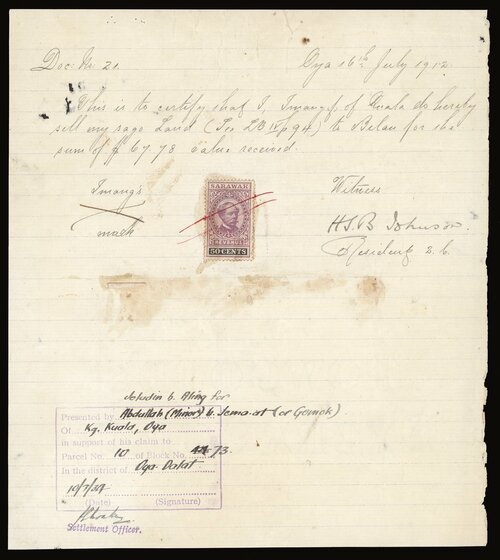 Doc: No 21. Oya 16th July 1912.
This is to certify that I, Imang of Kuala do hereby
sell my sago Land (See LO 694) to Bilan for the
sum of $ 67.78 value received.
Imang's Witness
mark
H.S.B Johnson.
Resident 3. C.
SARAWAK
REVENUE
50 CENTS
Joludin b. Aling for
Presented by Abdullah (Minor) b. Jema-at (or Gemok)
Of Kg. Kuala, Oya
in support of his claim to
Parcel No. 10 of Block No. 73
In the district of Oya Dalat
10/7/37
(Date) (Signature)
Settlement Officer.